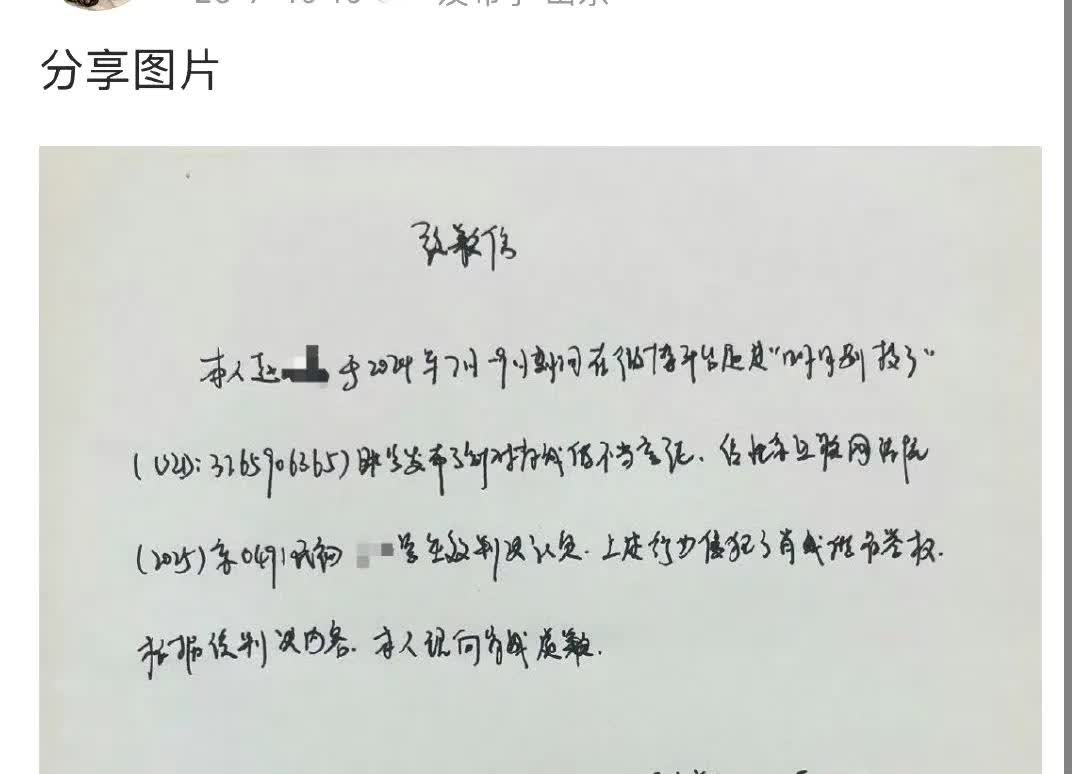 分享图片
致歉信
本人赵 于2024年7月-9月期间在微博平台通过"
(UID:3265906365)账号发布了针对肖战的不当言论,经北京互联网法院
(2025)京0491民初 号生效判决认定,上述行为侵犯了肖战的名誉权.
根据该判决内容,本人现向肖战致歉.